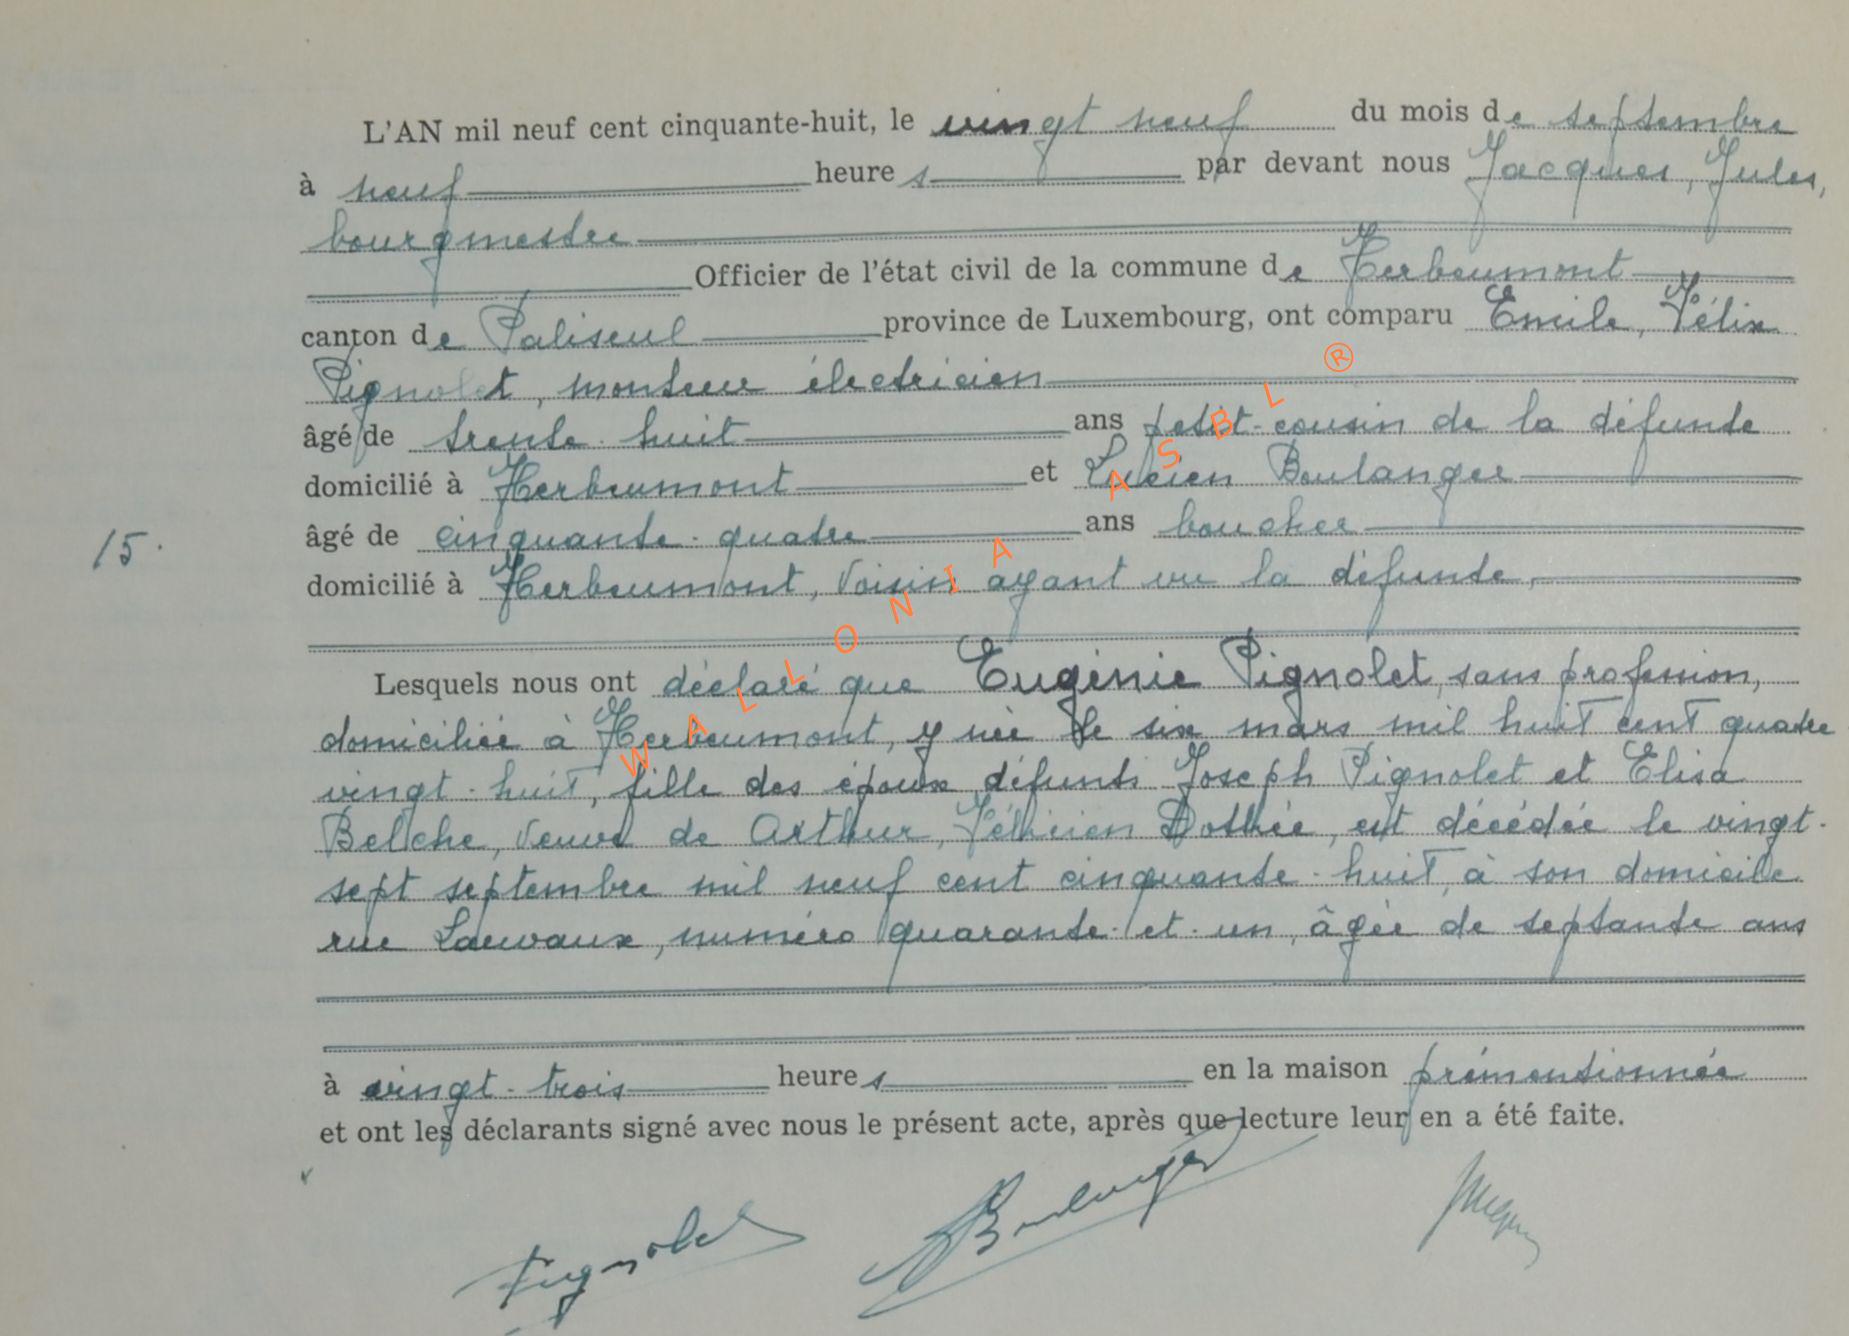 L'AN mil neuf cent cinquante-huit, le vingt neuf du mois de septembre
à neuf heures par devant nous Jacques, Jules,
bourgmestre
Officier de l'état civil de la commune de Herbeumont
canton de Paliseul province de Luxembourg, ont comparu Emile, Félix
Pignolet, monteur électricien
âgé de trente-huit ans petit-cousin de la défunte
domicilié à Herbeumont et Lucien Boulanger
15. âgé de cinquante-quatre ans boucher
domicilié à Herbeumont, voisin ayant vu la défunte,
Lesquels nous ont déclaré que Eugénie Pignolet, sans profession,
domiciliée à Herbeumont, y née le six mars mil huit cent quatre
vingt-huit, fille des époux défunts Joseph Pignolet et Elisa
Belche, veuve de Arthur, Félicien Dothée, est décédée le vingt-
sept septembre mil neuf cent cinquante-huit, à son domicile
rue Lauvaux, numéro quarante-et-un, âgée de septante ans
à vingt-trois heures en la maison prémentionnée
et ont les déclarants signé avec nous le présent acte, après que lecture leur en a été faite.
Pignolet Boulanger Jacques
WALLONIA ASBL ®